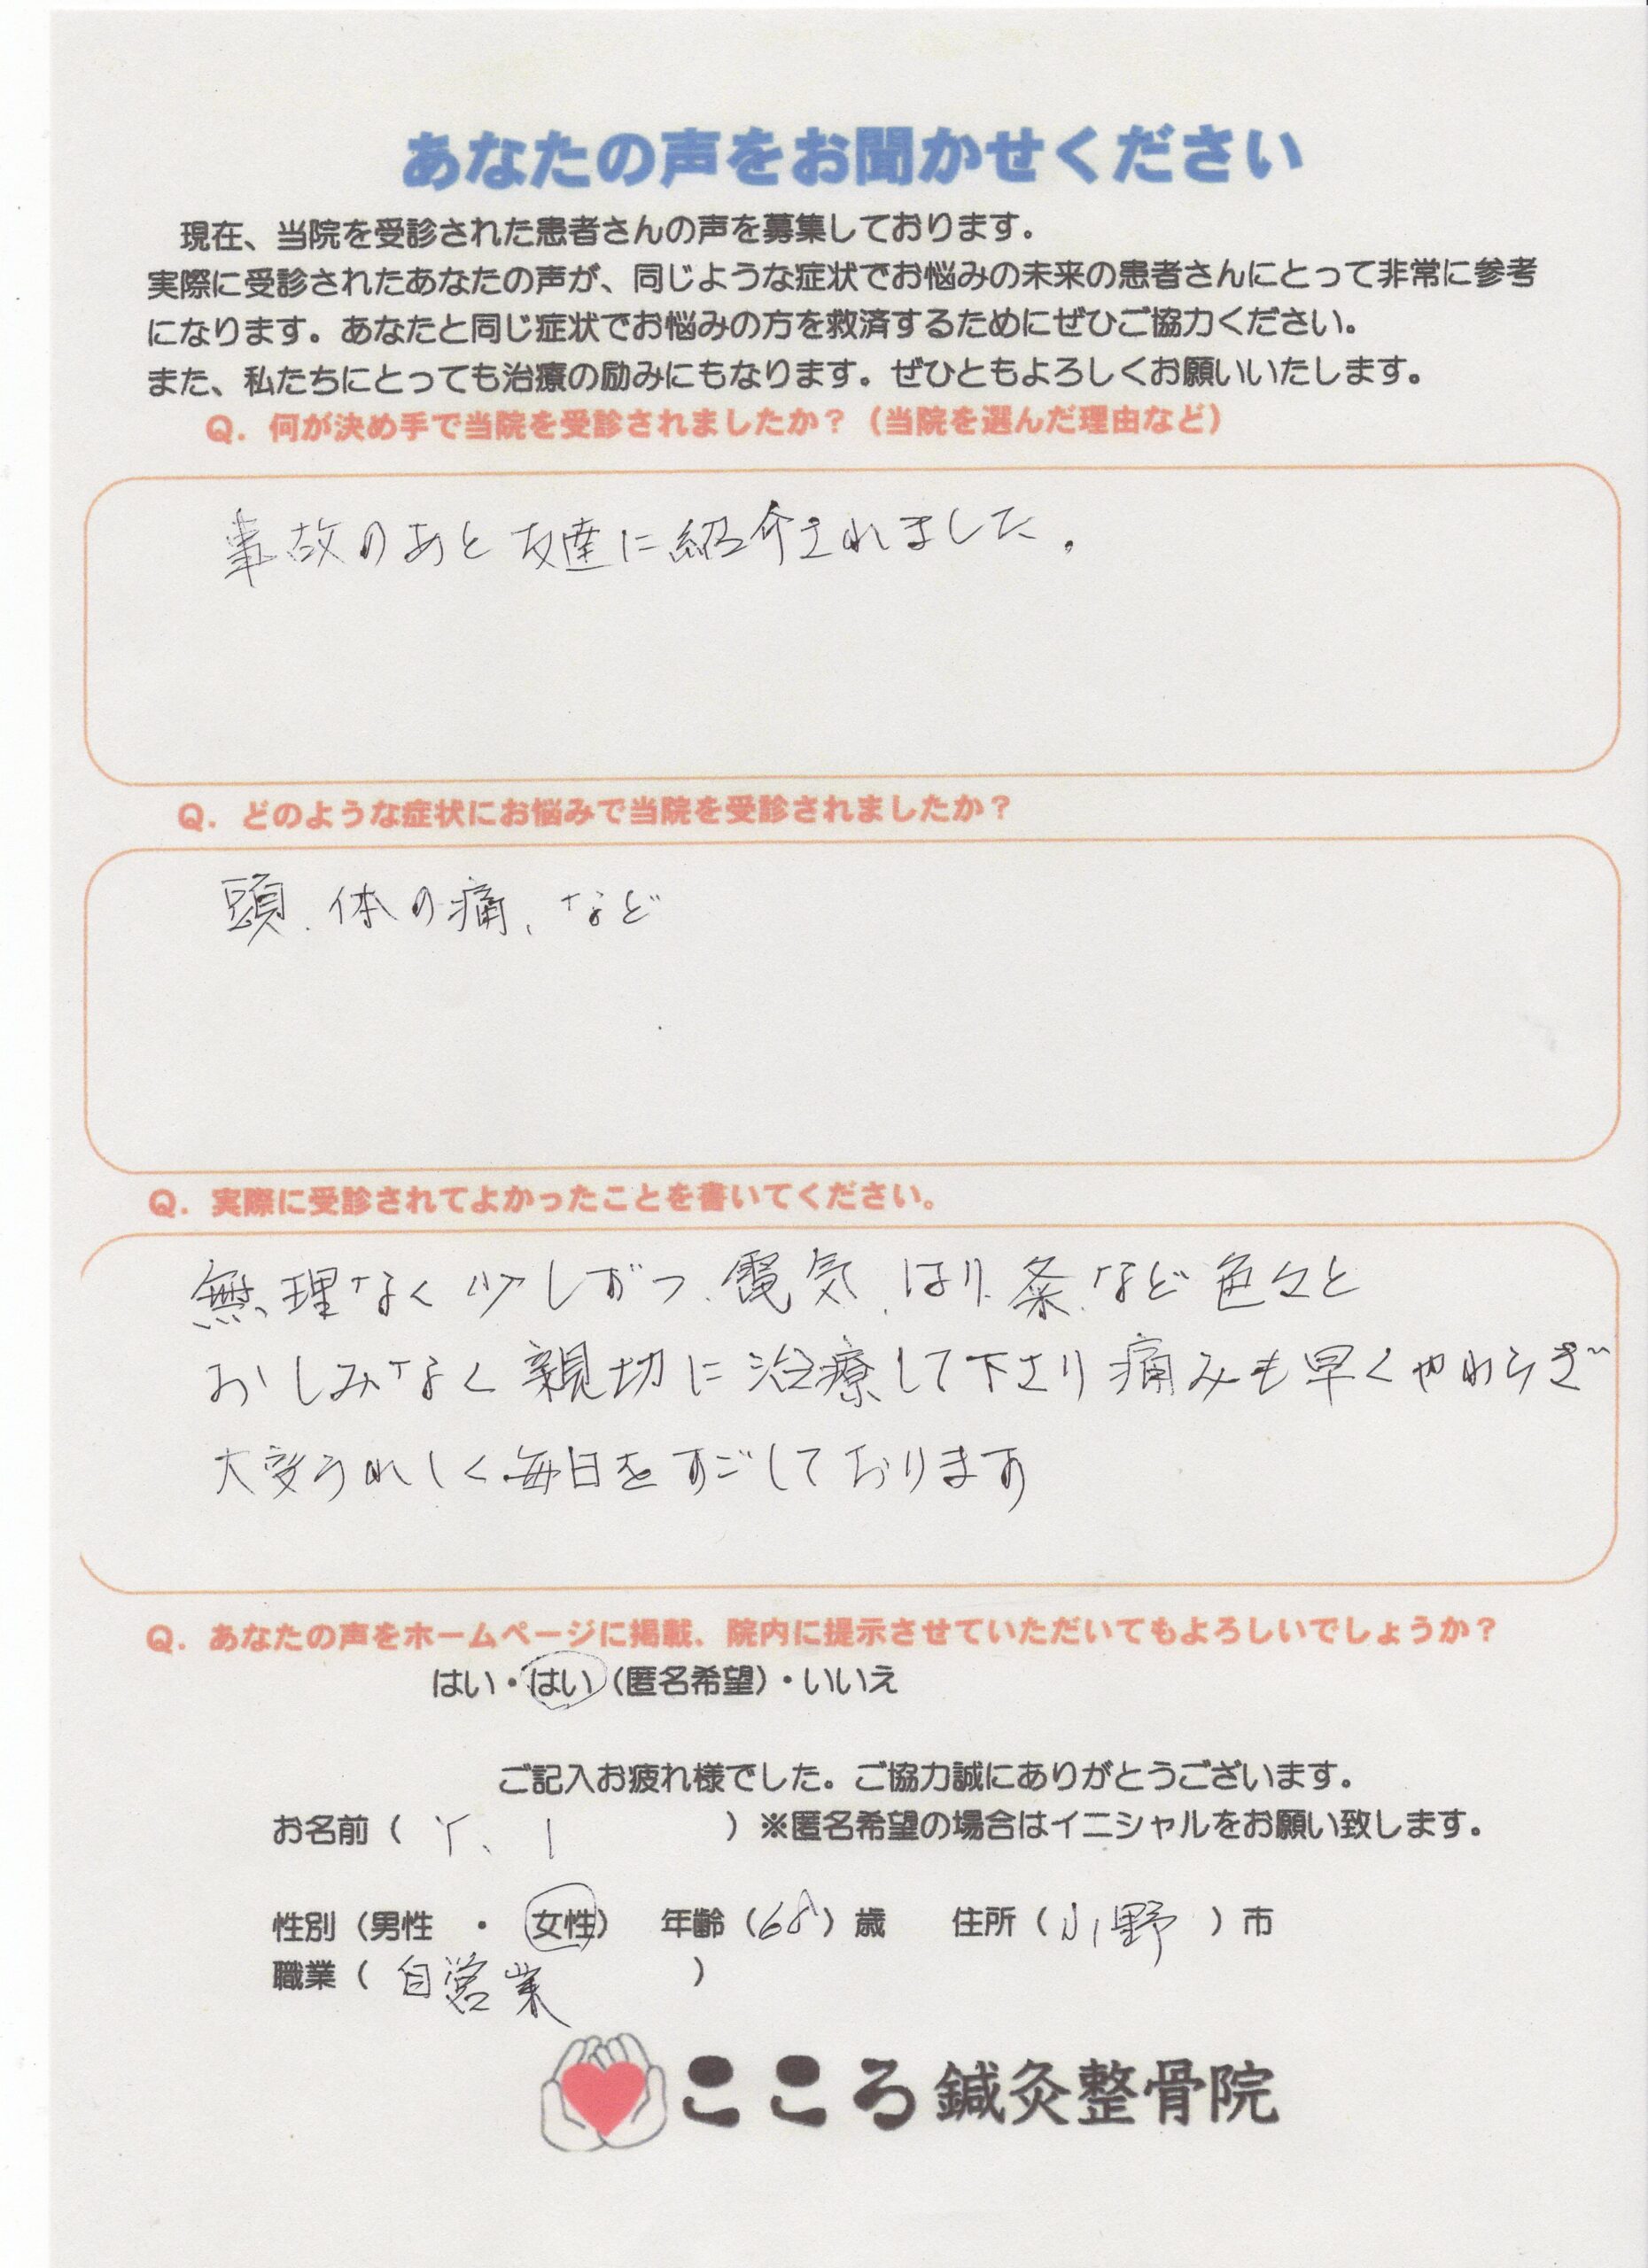 あなたの声をお聞かせください
現在、当院を受診された患者さんの声を募集しております。
実際に受診されたあなたの声が、同じような症状でお悩みの未来の患者さんにとって非常に参考
になります。あなたと同じ症状でお悩みの方を救済するためにぜひご協力ください。
また、私たちにとっても治療の励みにもなります。ぜひともよろしくお願いいたします。
Q. 何が決め手で当院を受診されましたか？（当院を選んだ理由など）
事故のあと友達に紹介されました。
Q. どのような症状にお悩みで当院を受診されましたか？
頭、体の痛、など
Q. 実際に受診されてよかったことを書いてください。
無理なく少しずつ、電気、はり、灸、など色々と
おしみなく親切に治療して下さり痛みも早くやわらぎ
大変うれしく毎日をすごしております
Q. あなたの声をホームページに掲載、院内に提示させていただいてもよろしいでしょうか？
はい・はい（匿名希望）・いいえ
ご記入お疲れ様でした。ご協力誠にありがとうございます。
お名前（ Y、I ）※匿名希望の場合はイニシャルをお願い致します。
性別（男性 ・ 女性） 年齢（68）歳 住所（小野）市
職業（自営業）
こころ鍼灸整骨院